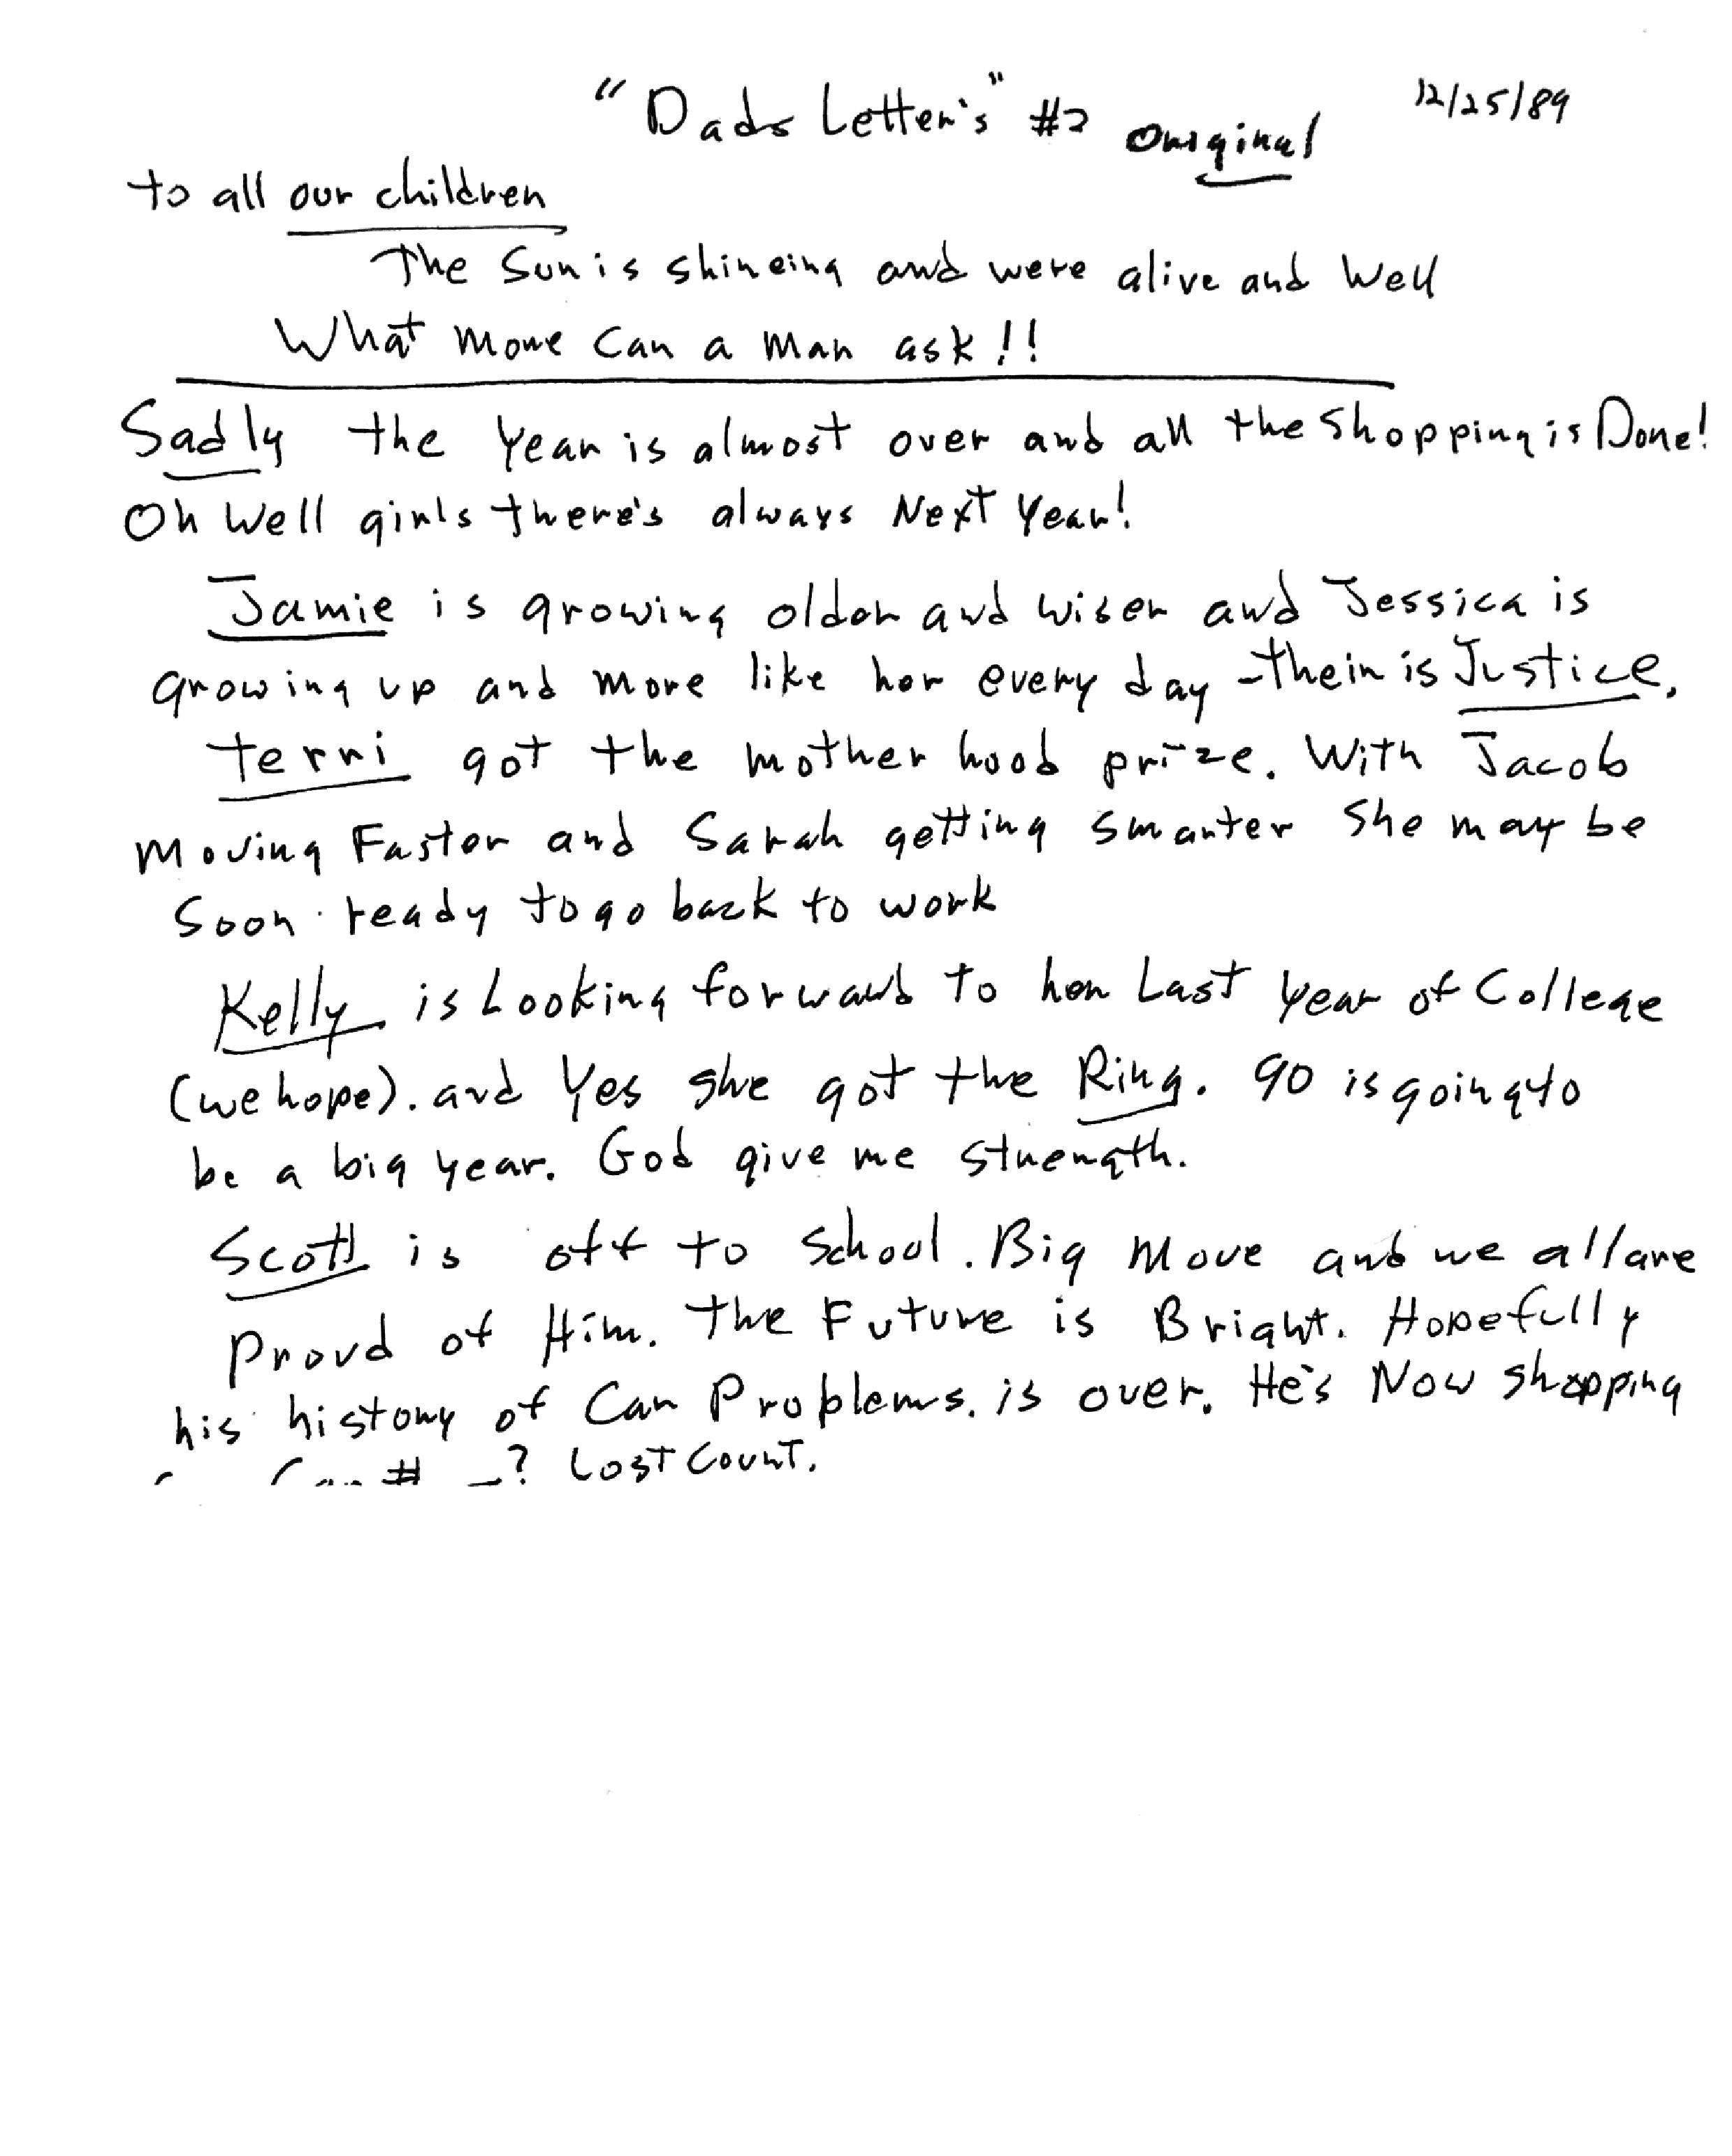 "Dads Letter's" #2 Original 12/25/89
to all our children
The Sun is shineing and were alive and Well
What More Can a Man ask!!
Sadly the Year is almost over and all the Shopping is Done!
Oh Well girls there's always Next Year!
Jamie is growing older and wiser and Jessica is
Growing up and more like her every day - Their is Justice.
terri got the mother hood prize. With Jacob
Moving Faster and Sarah getting smarter She may be
Soon ready to go back to work
Kelly is Looking forward to her Last Year of College
(we hope). and Yes she got the Ring. 90 is going to
be a big year. God give me strength.
Scott is off to School. Big Move and we all are
Proud of Him. The Future is Bright. Hopefully
his history of Car Problems. is over. He's Now shopping
# _? Lost Count.